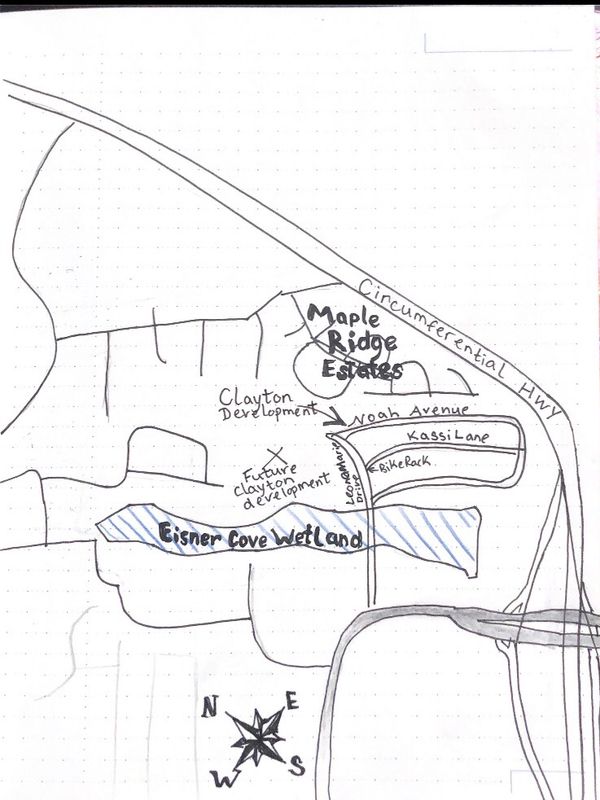 Circumferential HWY
Maple
Ridge
Estates
Clayton
Development
Noah Avenue
Kassi Lane
Leona Marie
Drive
Bike Rack
X
Future
Clayton
development
Eisner Cove Wetland
N
E
W
S